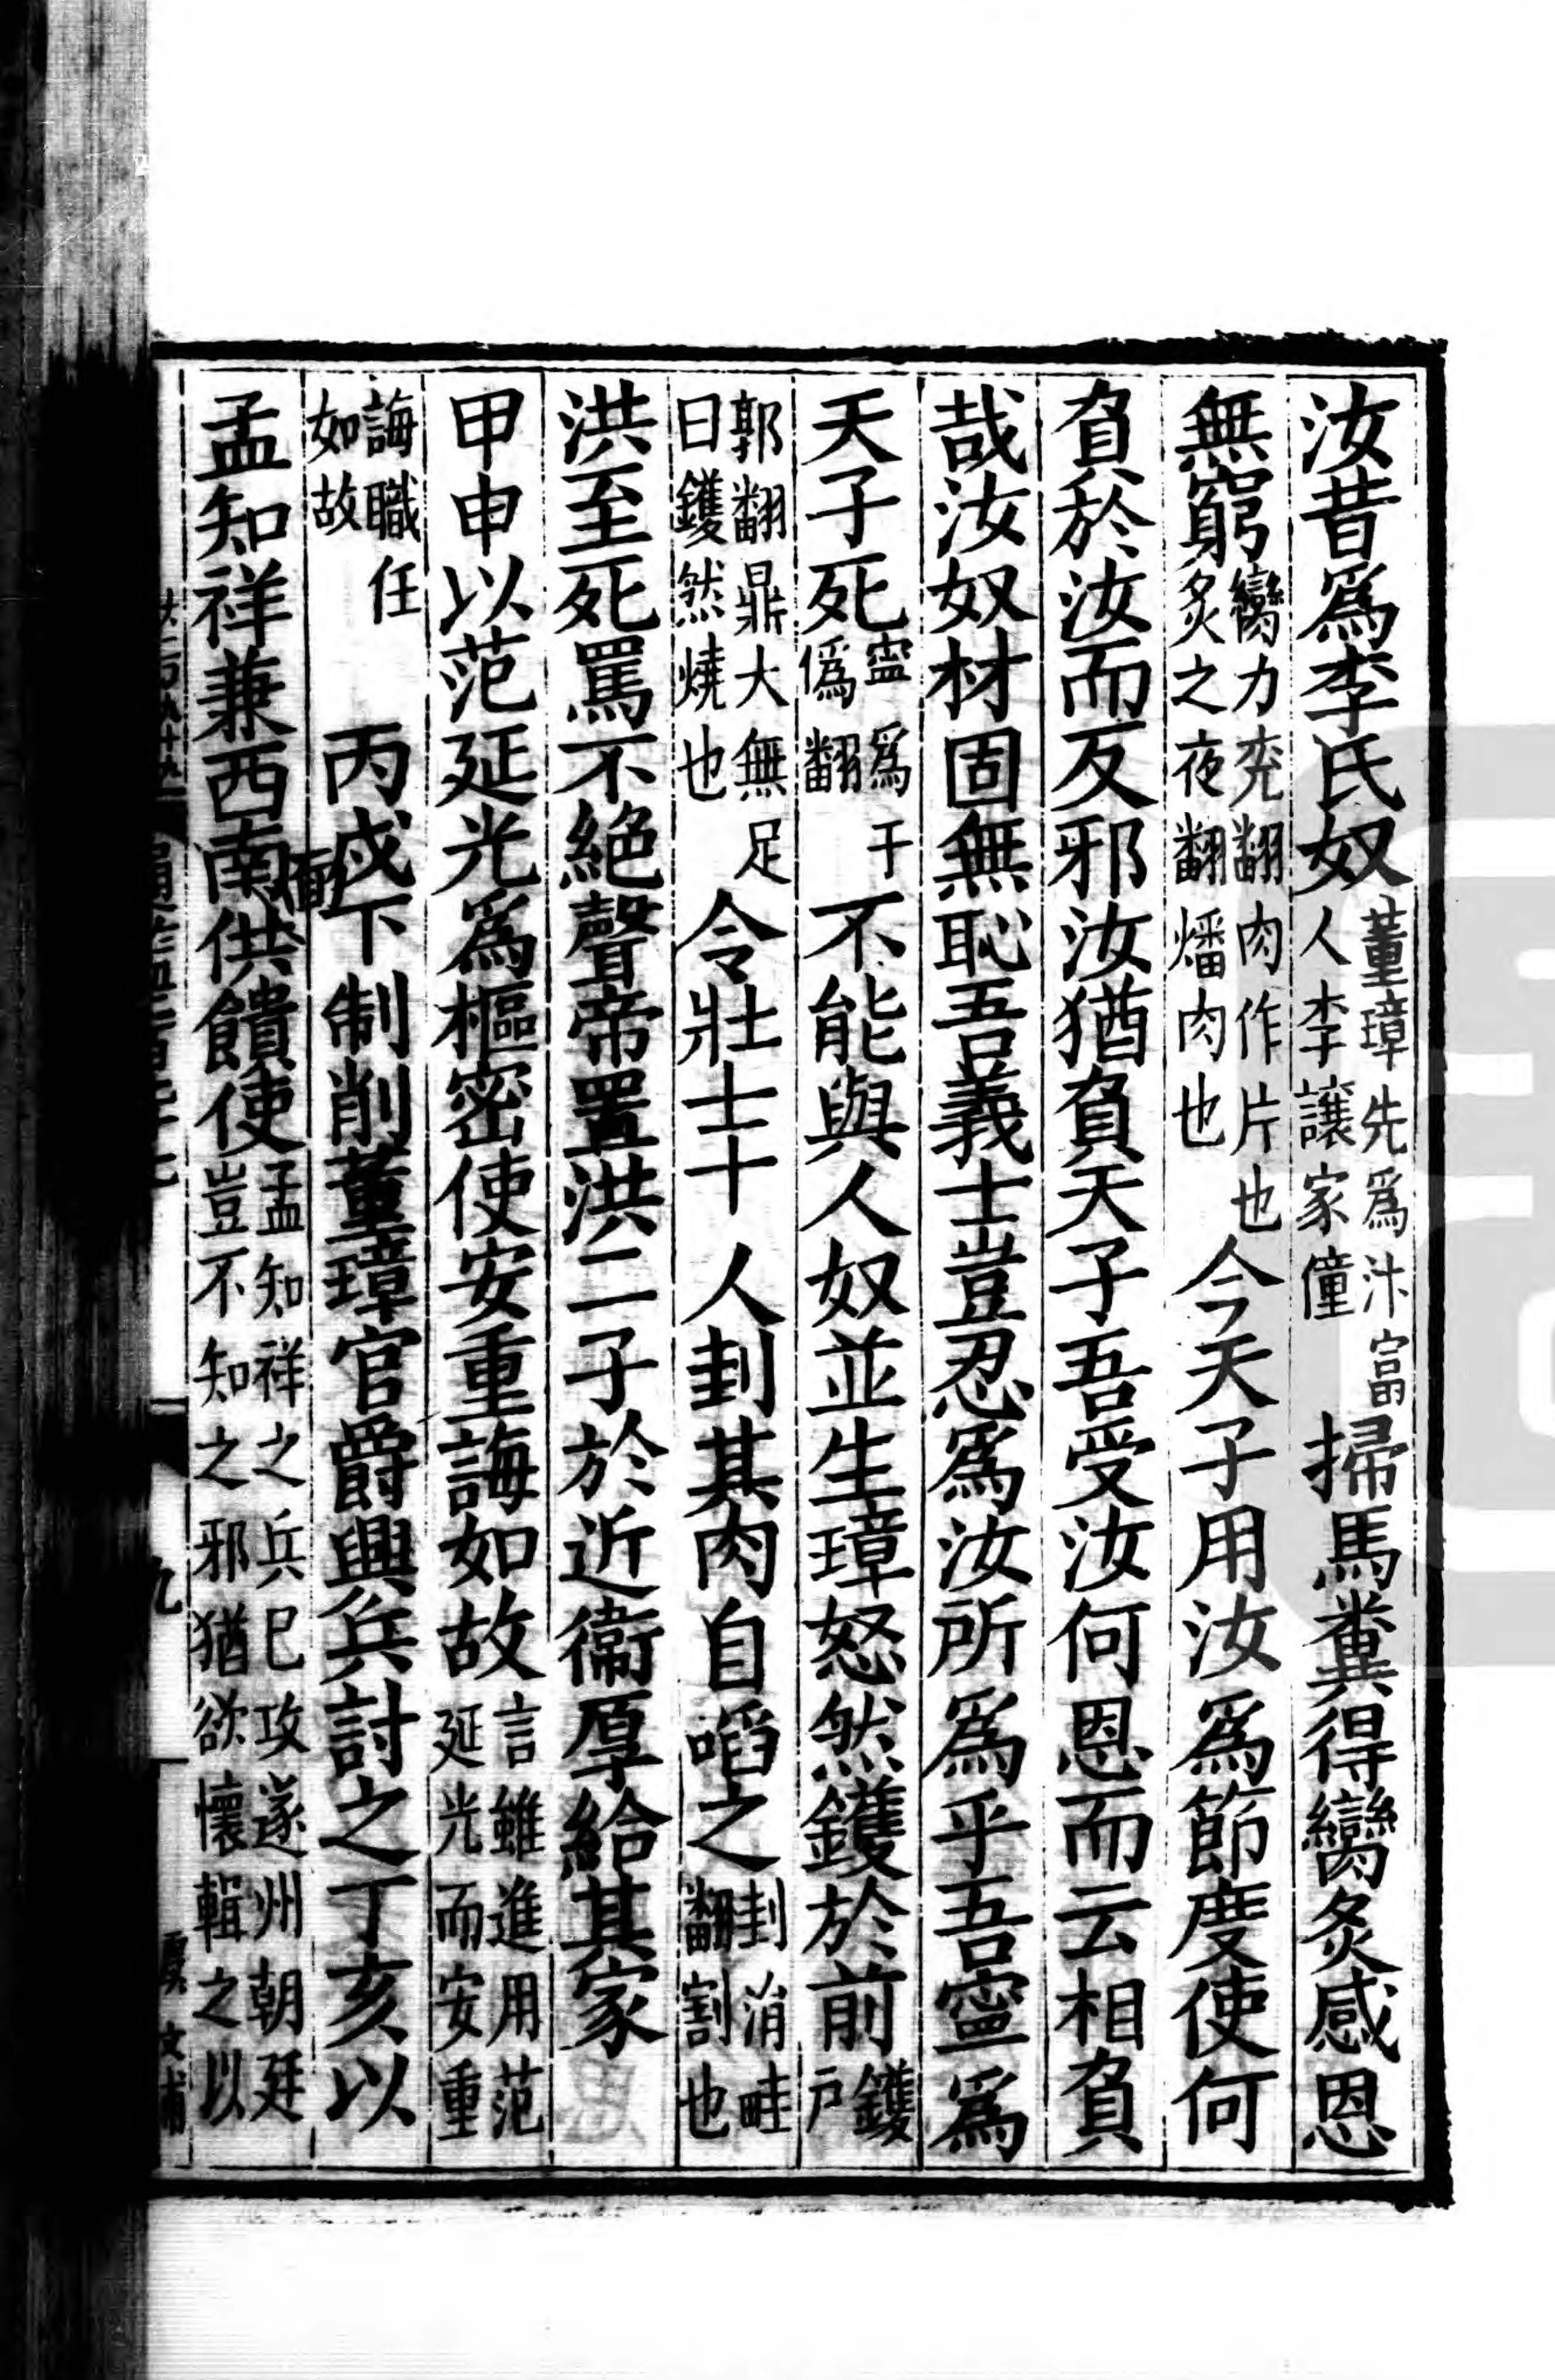 汝昔爲李氏奴董璋先爲汴富人李讓家僮掃馬糞得臠炙感恩
無窮臠力兖翻肉作片也炙之夜翻燔肉也今天子用汝爲節度使何
負於汝而反邪汝猶負天子吾受汝何恩而云相負
哉汝奴材固無恥吾義士豈忍爲汝所爲乎吾寧爲
天子死寍爲于僞翻不能與人奴並生璋怒然鑊於前鑊戶
郭翻鼎大無足曰鑊然燒也令壯士十人刲其肉自啗之刲涓畦翻割也
洪至死罵不絶聲帝置洪二子於近衞厚給其家
甲申以范延光爲樞密使安重誨如故言雖進用范延光而安重
誨職任如故丙戌下制削董璋官爵興兵討之丁亥以
孟知祥兼西南供饋使孟知祥之兵已攻遂州朝廷豈不知之邪猶欲懷輯之以